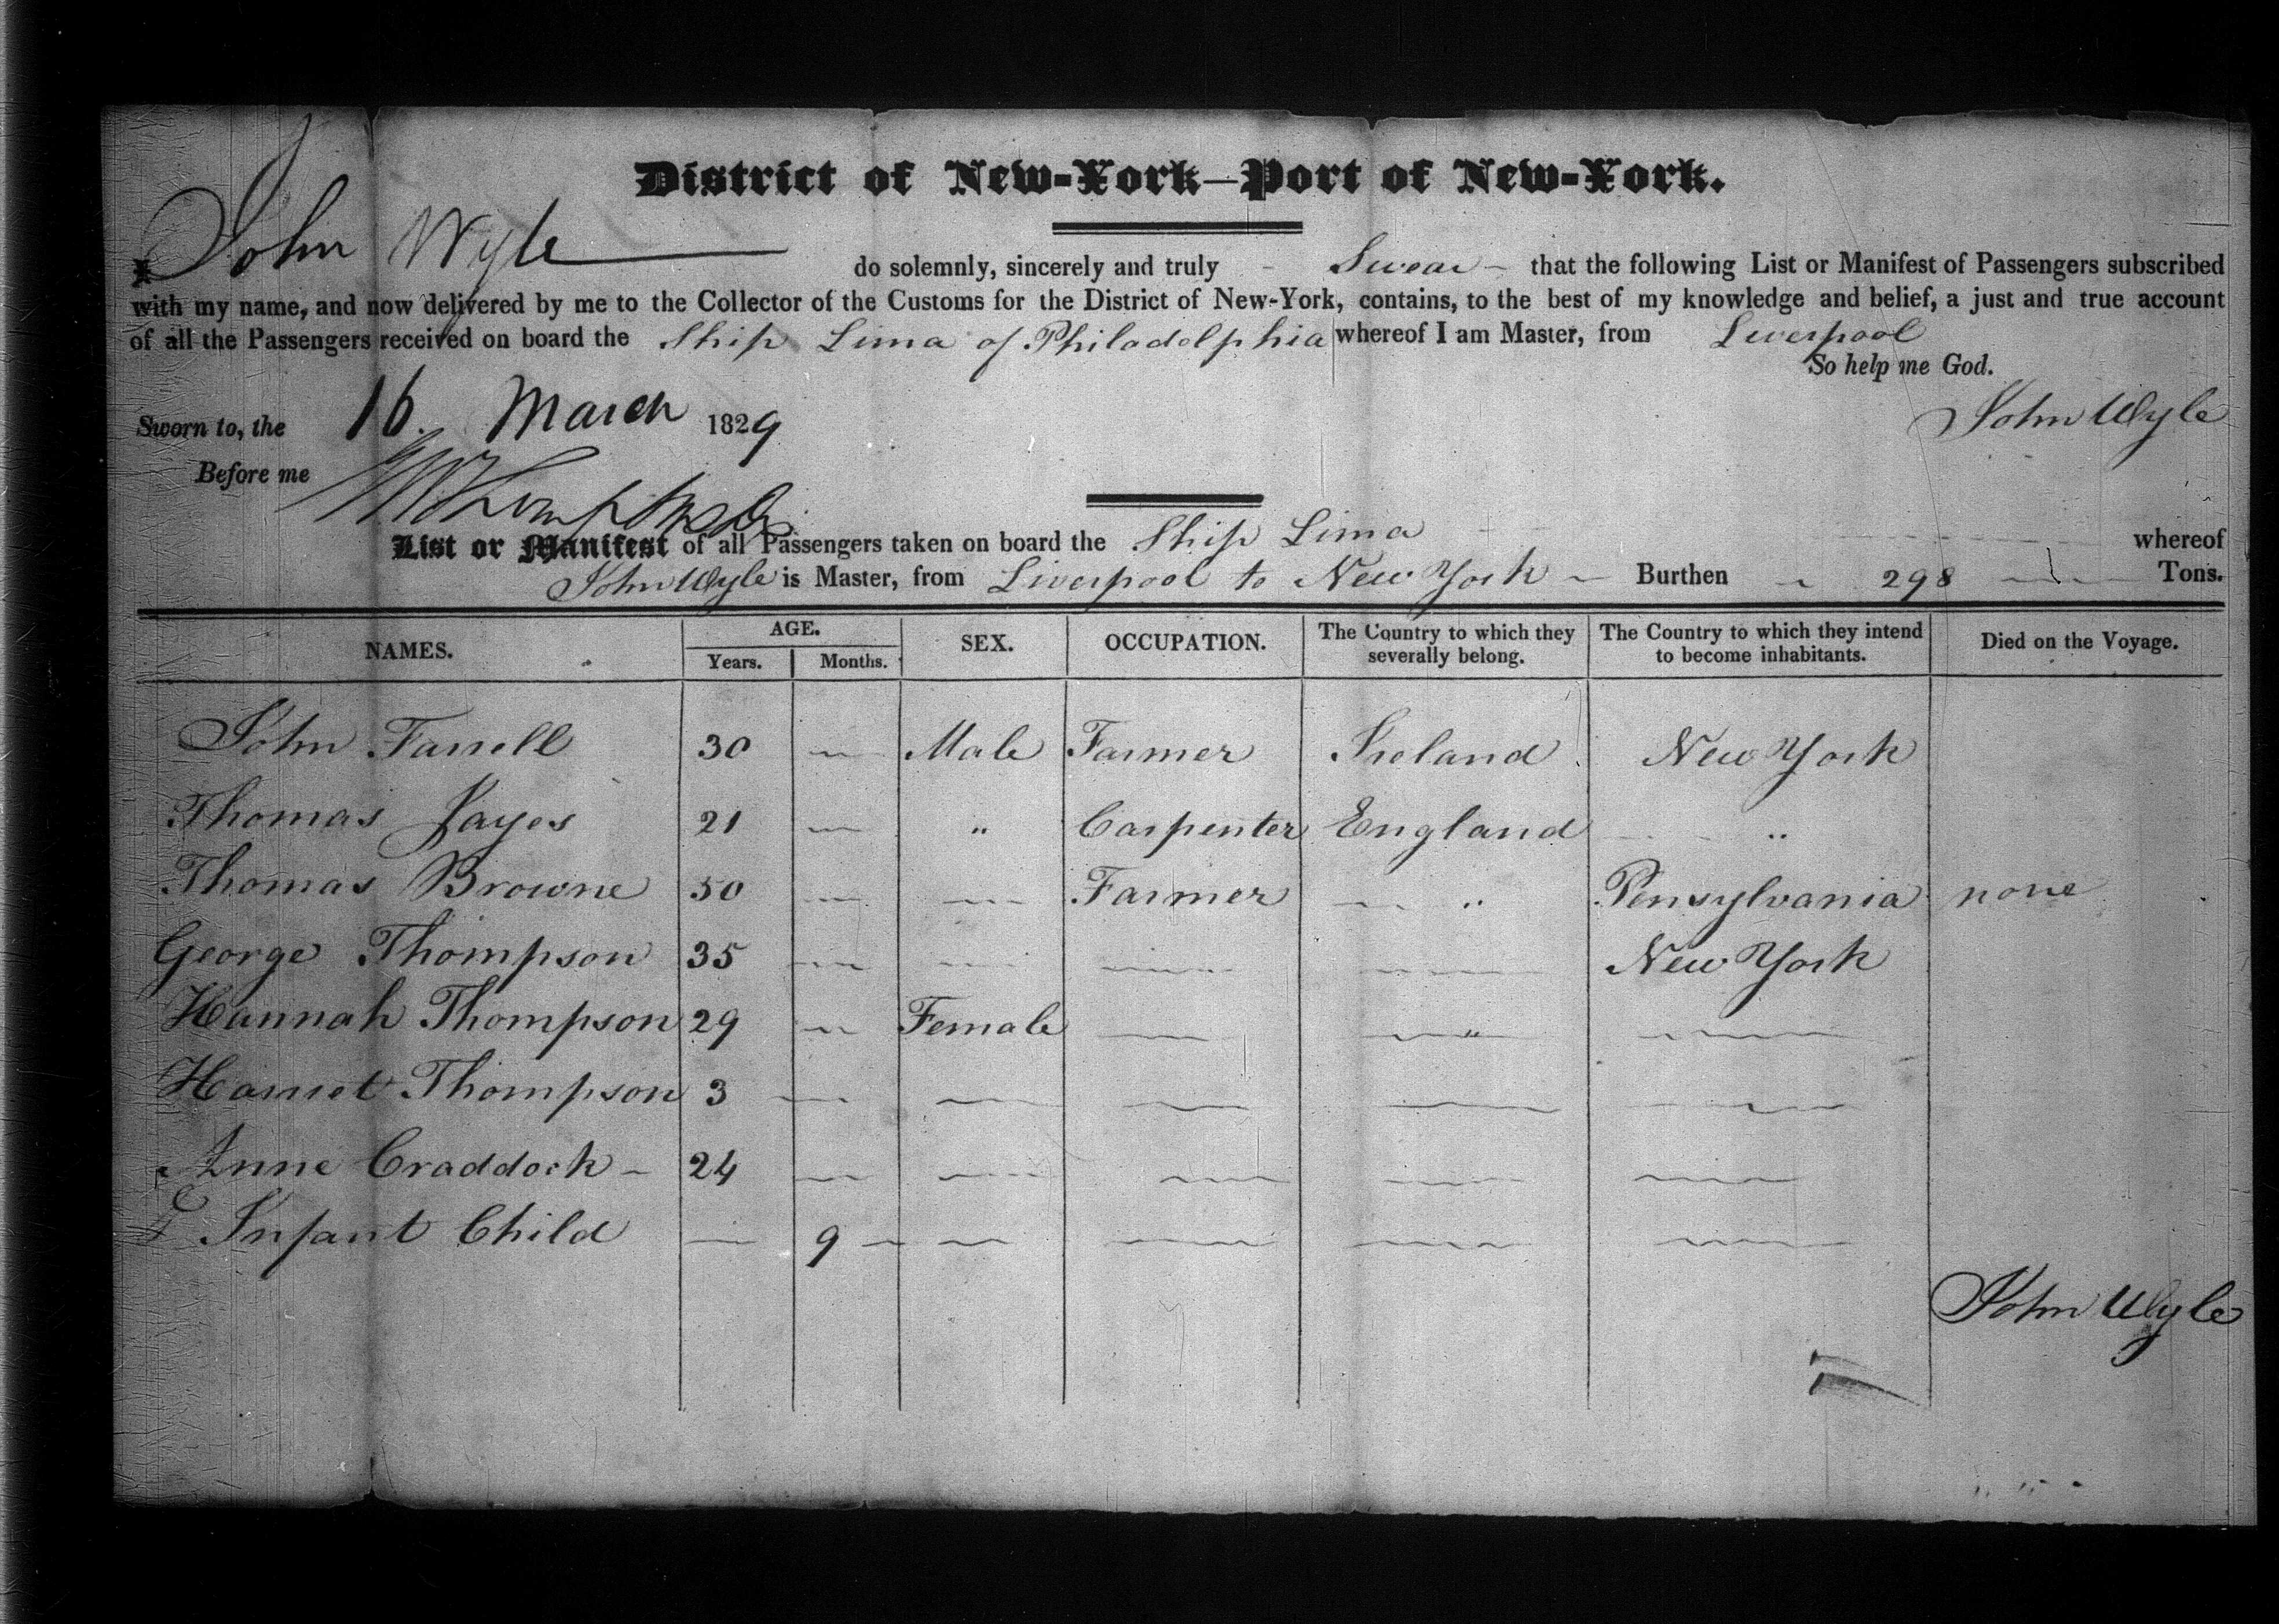 District of New-York—Port of New-York.
I John Wyle do solemnly, sincerely and truly - Swear - that the following List or Manifest of Passengers subscribed
with my name, and now delivered by me to the Collector of the Customs for the District of New-York, contains, to the best of my knowledge and belief, a just and true account
of all the Passengers received on board the Ship Lima of Philadelphia whereof I am Master, from Liverpool
So help me God.
Sworn to, the 16. March 1829
John Wyle
Before me
List or Manifest of all Passengers taken on board the Ship Lima whereof
John Wyle is Master, from Liverpool to New York - Burthen - 298 Tons.
NAMES. AGE. Years. Months. SEX. OCCUPATION. The Country to which they severally belong. The Country to which they intend to become inhabitants. Died on the Voyage.
John Farrell 30 — Male Farmer Ireland New York
Thomas Jayes 21 — " Carpenter England "
Thomas Browne 50 — — Farmer — " Pensylvania none
George Thompson 35 — — — — New York
Hannah Thompson 29 — Female — — " —
Harriet Thompson 3 — — — — —
Anne Craddock - 24 — — — — —
& Infant Child — 9 — — — — —
John Wyle